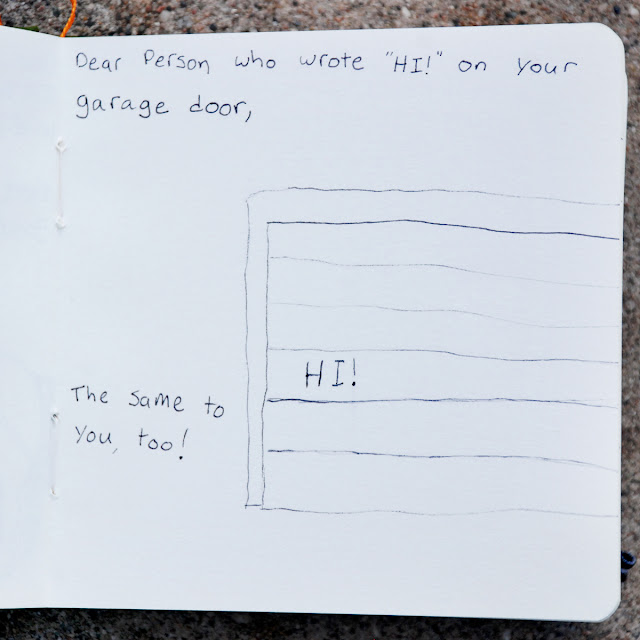 Dear Person who wrote "HI!" on your
garage door,
HI!
The same to
you, too!